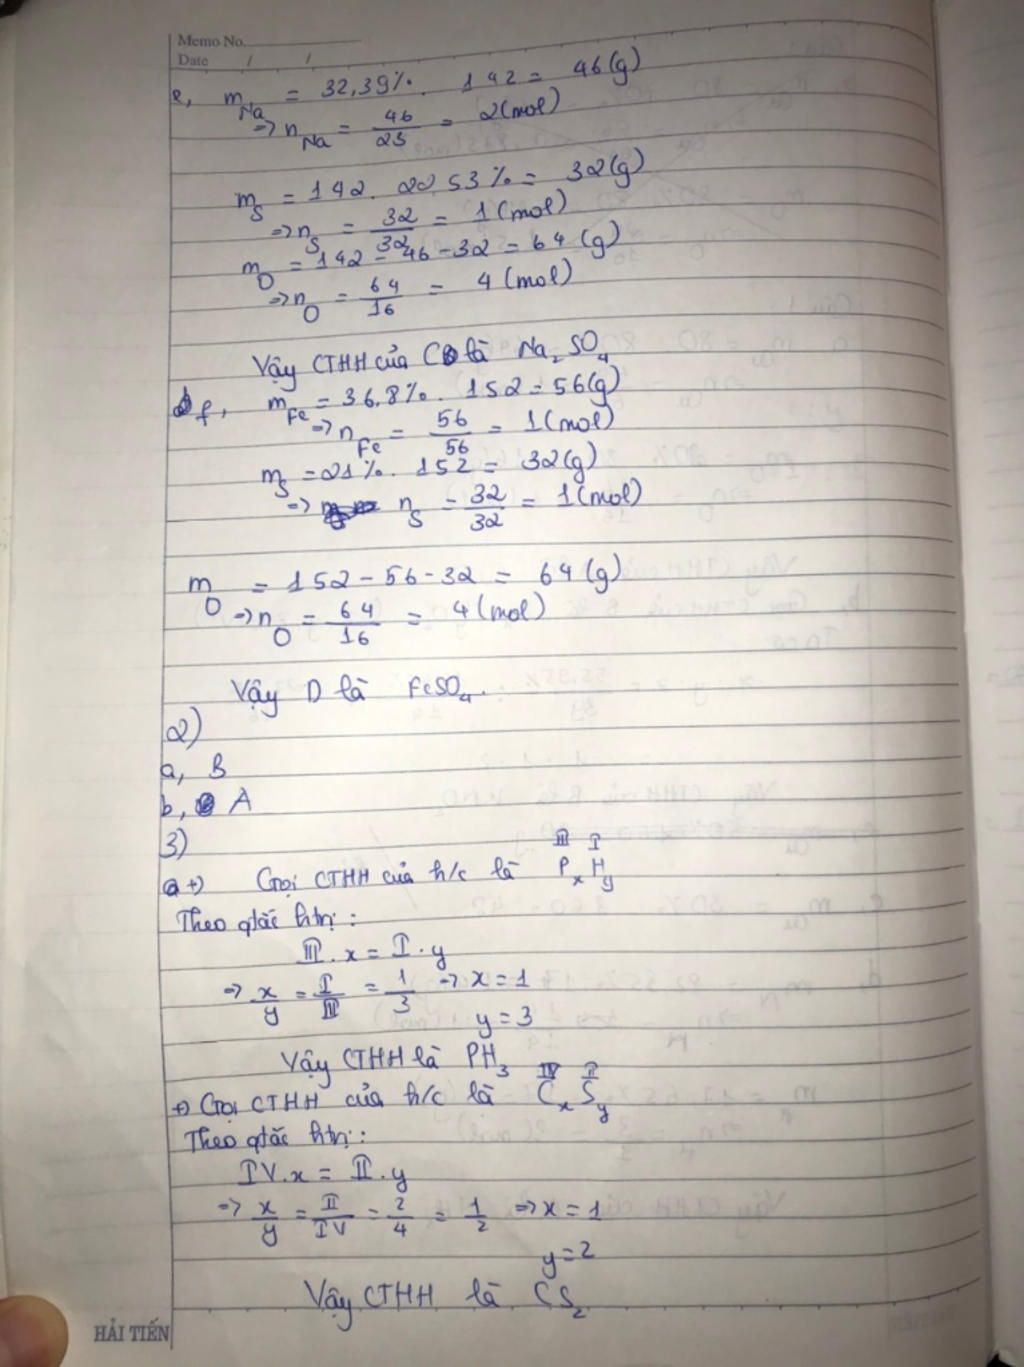 Memo No.
Date / /
e, m Na = 32,39%. 142 = 46(g)
=> n Na = 46/23 = 2(mol)
m S = 142. 22,53% = 32(g)
=> n S = 32/32 = 1(mol)
m O = 142 - 46 - 32 = 64 (g)
=> n O = 64/16 = 4(mol)
Vậy CTHH của C là Na₂SO₄
f, m Fe = 36,8%. 152 = 56(g)
=> n Fe = 56/56 = 1(mol)
m S = 21%. 152 = 32(g)
=> n S = 32/32 = 1(mol)
m O = 152 - 56 - 32 = 64(g)
=> n O = 64/16 = 4(mol)
Vậy D là FeSO₄.
2)
a, B
b, A
3)
III I
a +) Gọi CTHH của h/c là PxHy
Theo qtắc htrị:
III. x = I. y
=> x/y = I/III = 1/3 => x = 1
y = 3
Vậy CTHH là PH₃
IV II
+) Gọi CTHH của h/c là CxSy
Theo qtắc htrị:
IV. x = II. y
=> x/y = II/IV = 2/4 = 1/2 => x = 1
y = 2
Vậy CTHH là CS₂
HẢI TIẾN